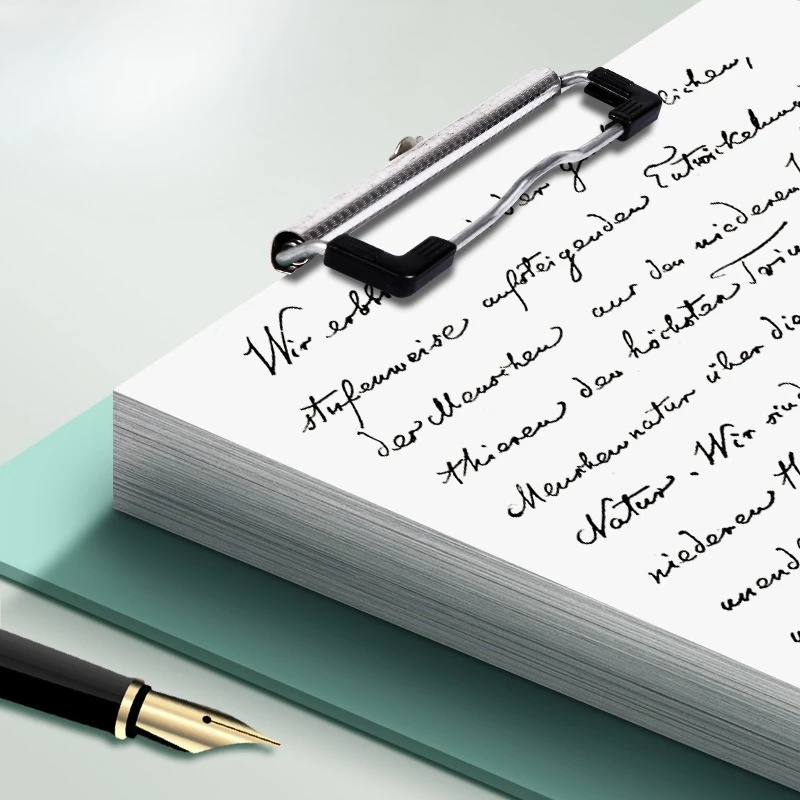 Wir erbli der g lichen,
stufenweise aufsteigenden Entwickelung
der Menschen aus den niederen
thieren den höchsten Triu
Menschennatur über die
Natur. Wir sind
niederen th
unend